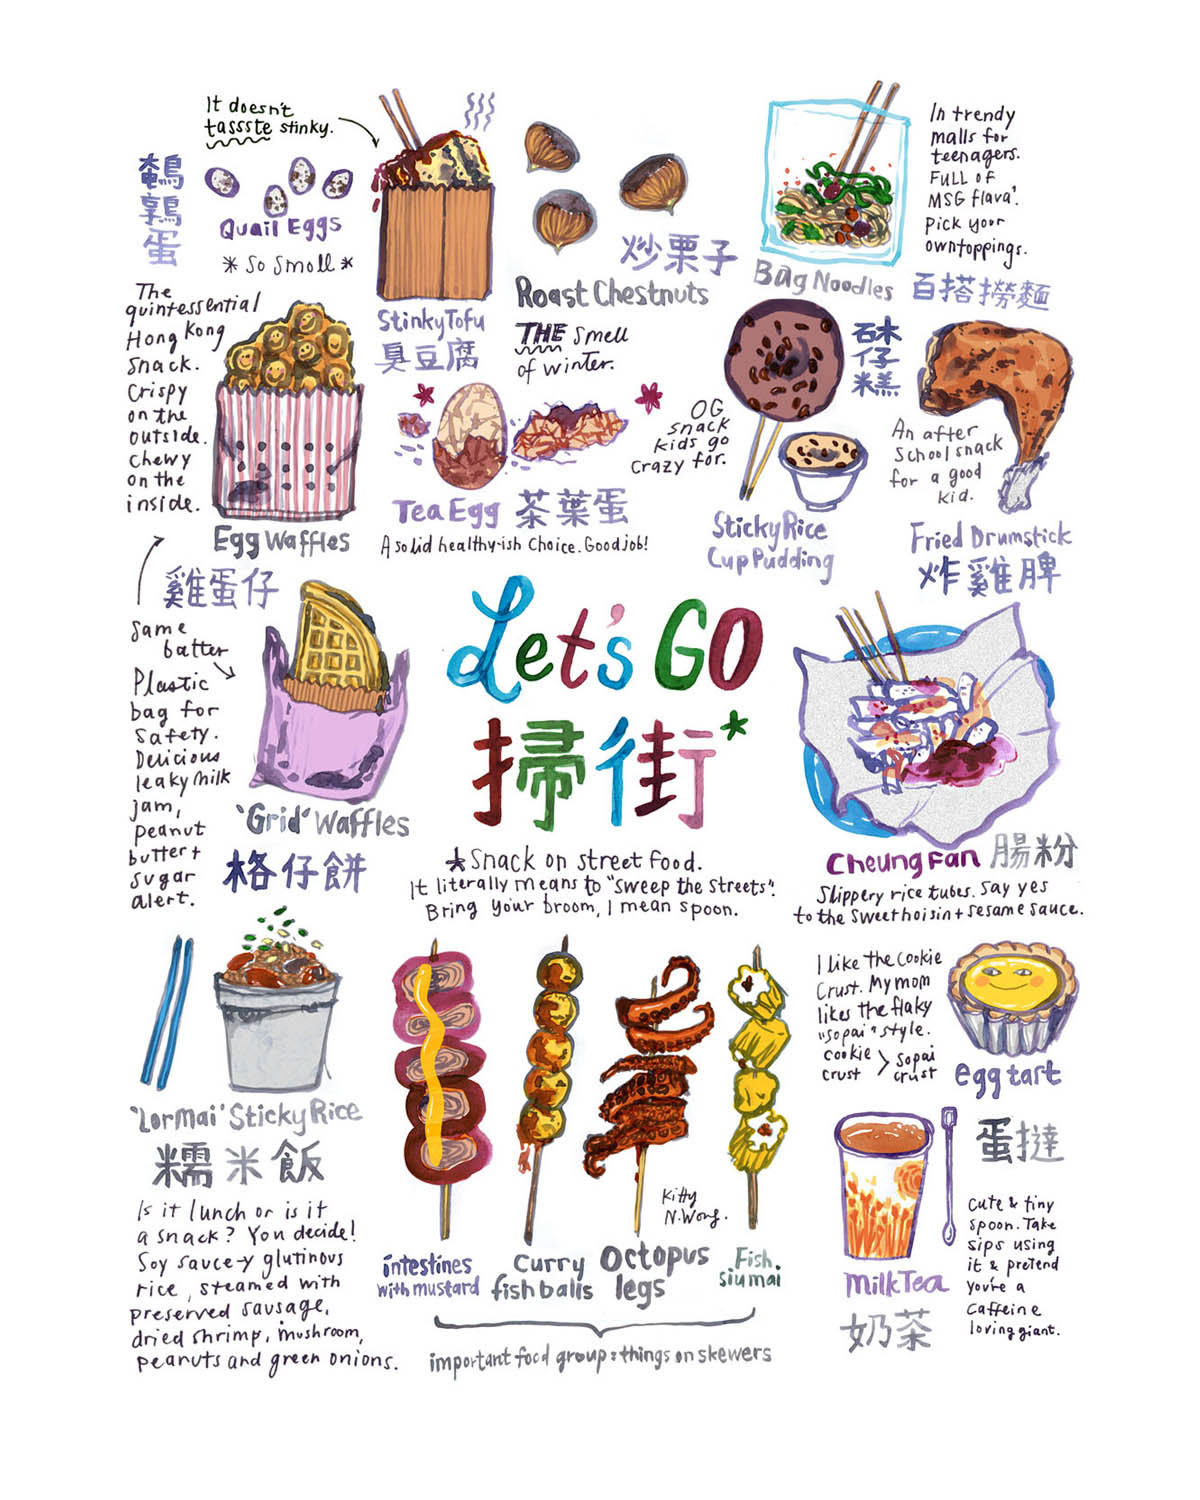 It doesn't
tassste stinky.
鵪
鶉
蛋
Quail Eggs
* so smoll *
Stinky Tofu
臭豆腐
炒栗子
Roast Chestnuts
THE smell
of winter.
In trendy
malls for
teenagers.
FULL OF
MSG flava'.
Pick your
own toppings.
Bag Noodles
百搭撈麵
The
quintessential
Hong Kong
snack.
Crispy
on the
outside.
Chewy
on the
inside.
Egg Waffles
雞蛋仔
Tea Egg 茶葉蛋
A solid healthy-ish choice. Good job!
OG
snack
kids go
crazy for.
砵
仔
糕
Sticky Rice
Cup Pudding
An after
School snack
for a good
kid.
Fried Drumstick
炸雞脾
Same
batter
Plastic
bag for
Safety.
Delicious
leaky milk
jam,
peanut
butter +
sugar
alert.
'Grid' Waffles
格仔餅
Let's GO
掃街*
* Snack on street food.
It literally means to "sweep the streets".
Bring your broom, I mean spoon.
Cheung Fan 腸粉
Slippery rice tubes. Say yes
to the sweet hoisin + sesame sauce.
'Lor Mai' Sticky Rice
糯米飯
Is it lunch or is it
a snack? You decide!
Soy sauce-y glutinous
rice, steamed with
preserved sausage,
dried shrimp, mushroom,
peanuts and green onions.
Kitty
N. Wong.
intestines
with mustard
Curry
fishballs
Octopus
legs
Fish
siu mai
important food group: things on skewers
I like the cookie
crust. My mom
likes the flaky
"sopai" style.
cookie
crust
>
sopai
crust
egg tart
蛋撻
Milk Tea
奶茶
Cute & tiny
spoon. Take
sips using
it & pretend
you're a
caffeine
loving giant.